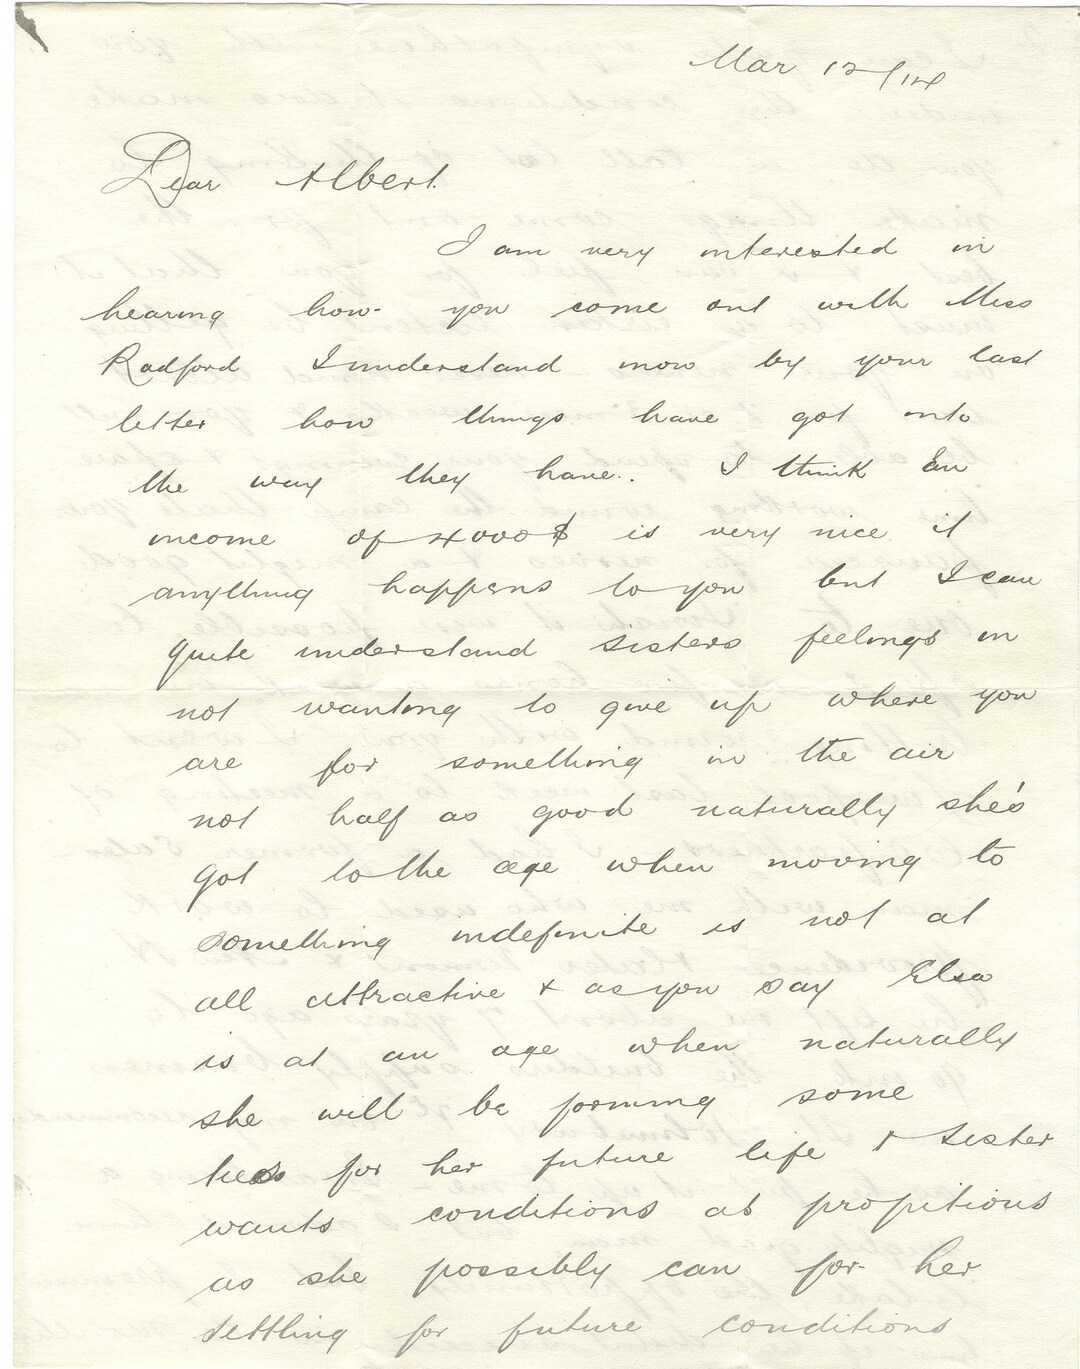 Mar 12/14
Dear Albert.
I am very interested in
hearing how you come out with Miss
Radford I understand now by your last
letter how things have got into
the way they have.. I think an
income of 4000$ is very nice if
anything happens to you but I can
quite understand Sisters feelings in
not wanting to give up where you
are for something in the air
not half as good naturally she's
got to the age when moving to
something indefinite is not at
all attractive & as you say Elsa
is at an age when naturally
she will be forming some
ties for her future life & Sister
wants conditions as propitious
as she possibly can for her
settling for future conditions